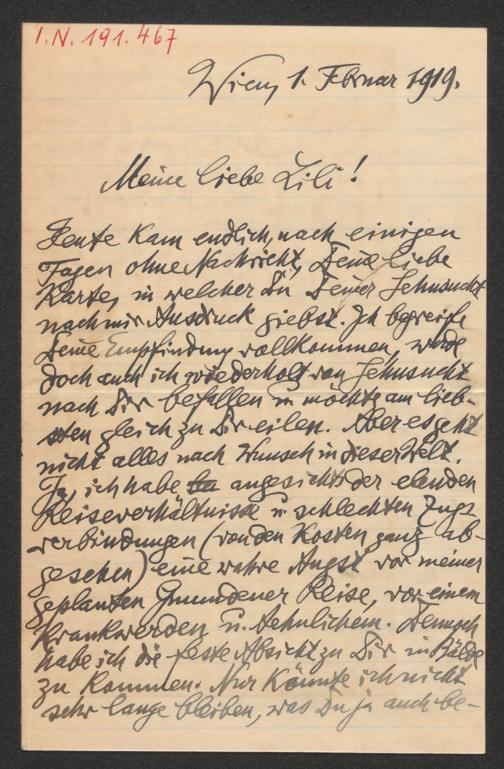 I.N. 191.467
Wien, 1. Februar 1919.
Meine liebe Lili!
Heute kam endlich, nach einigen
Tagen ohne Nachricht, Deine liebe
Karte, in welcher Du Deiner Sehnsucht
nach mir Ausdruck giebst. Ich begreife
Deine Empfindung vollkommen, werde
doch auch ich wiederholt von Sehnsucht
nach Dir befallen u möchte am lieb-
sten gleich zu Dir eilen. Aber es geht
nicht alles nach Wunsch in dieser Welt.
Ja, ich habe angesichts der elenden
Reiseverhältnisse u schlechten Zugs-
verbindungen (von den Kosten ganz ab-
gesehen) eine wahre Angst vor meiner
geplanten Gmundener Reise, vor einem
Krankwerden u. Aehnlichem. Dennoch
habe ich die feste Absicht zu Dir in Bälde
zu kommen. Nur könnte ich nicht
sehr lange bleiben, was Du ja auch be-